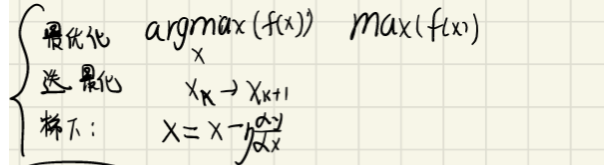 最优化 argmax(f(x)) max(f(x))
x
迭 最化 x_k → x_{k+1}
梯下: x = x - η dy/dx